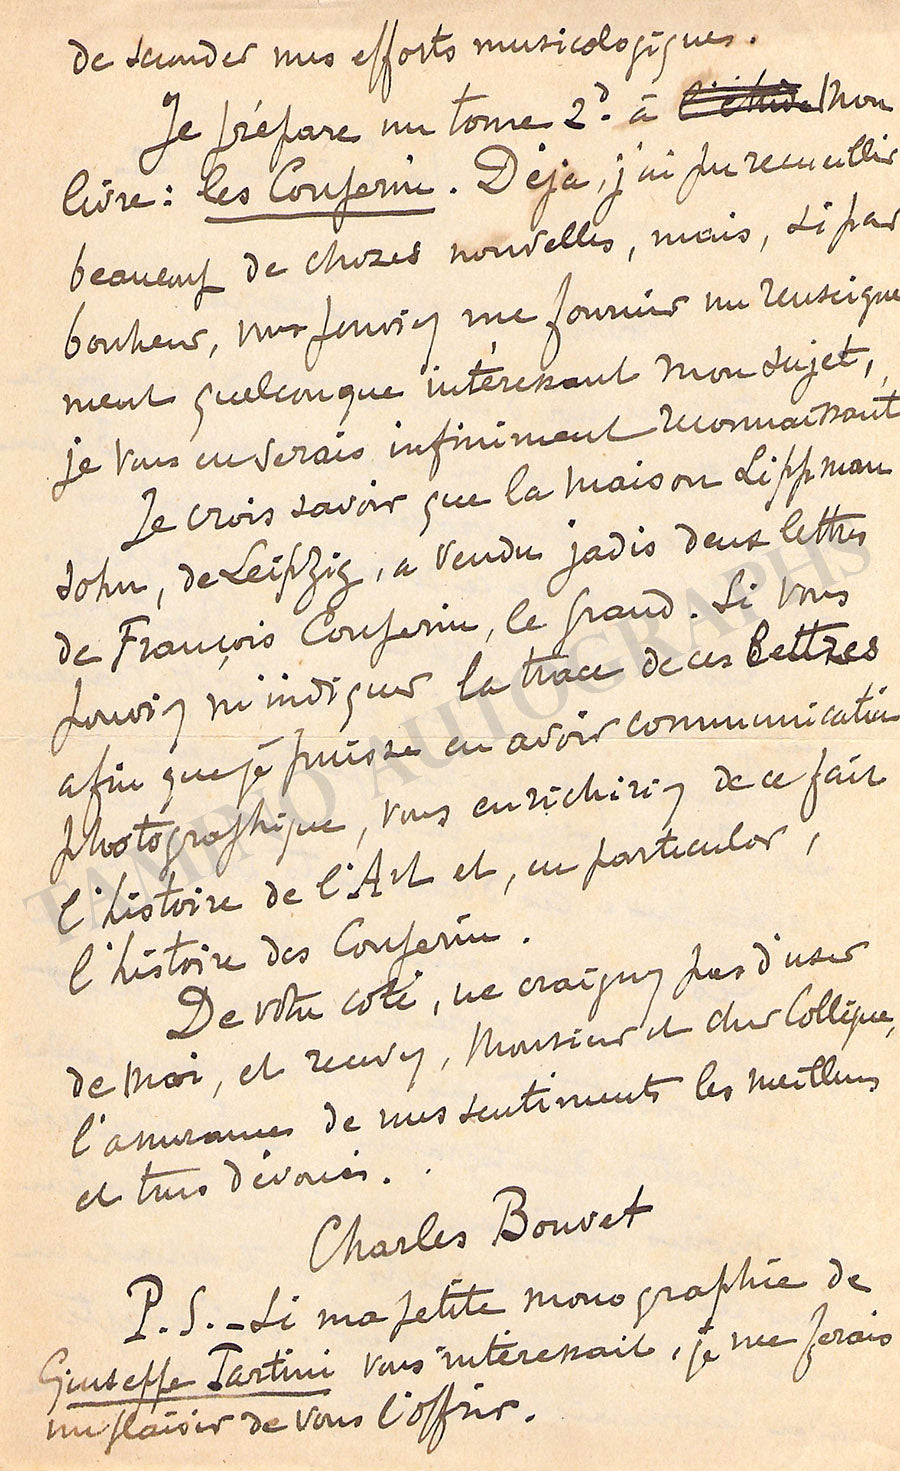 de seconder mes efforts musicologiques.
Je prépare un tome 2d. à l'étude mon
livre : les Couperin. Déjà, j'ai pu recueillir
beaucoup de choses nouvelles, mais, si par
bonheur, vous pouviez me fournir un renseigne
ment quelconque intéressant mon sujet,
je vous en serais infiniment reconnaissant
Je crois savoir que la maison Lippman
sohn, de Leipzig, a vendu jadis deux lettres
de François Couperin, le grand. Si vous
pouviez m'indiquer la trace de ces lettres
afin que je puisse en avoir communication
photographique, vous enrichiriez de ce fait
l'histoire de l'Art et, en particulier,
l'histoire des Couperin.
De votre coté, ne craignez pas d'user
de moi, et recevez, Monsieur et cher Collègue,
l'assurance de mes sentiments les meilleurs
et très dévoués.
Charles Bouvet
P.S. - Si ma petite monographie de
Giuseppe Tartini vous intéressait, je me ferais
un plaisir de vous l'offrir.
TAMINO AUTOGRAPHS